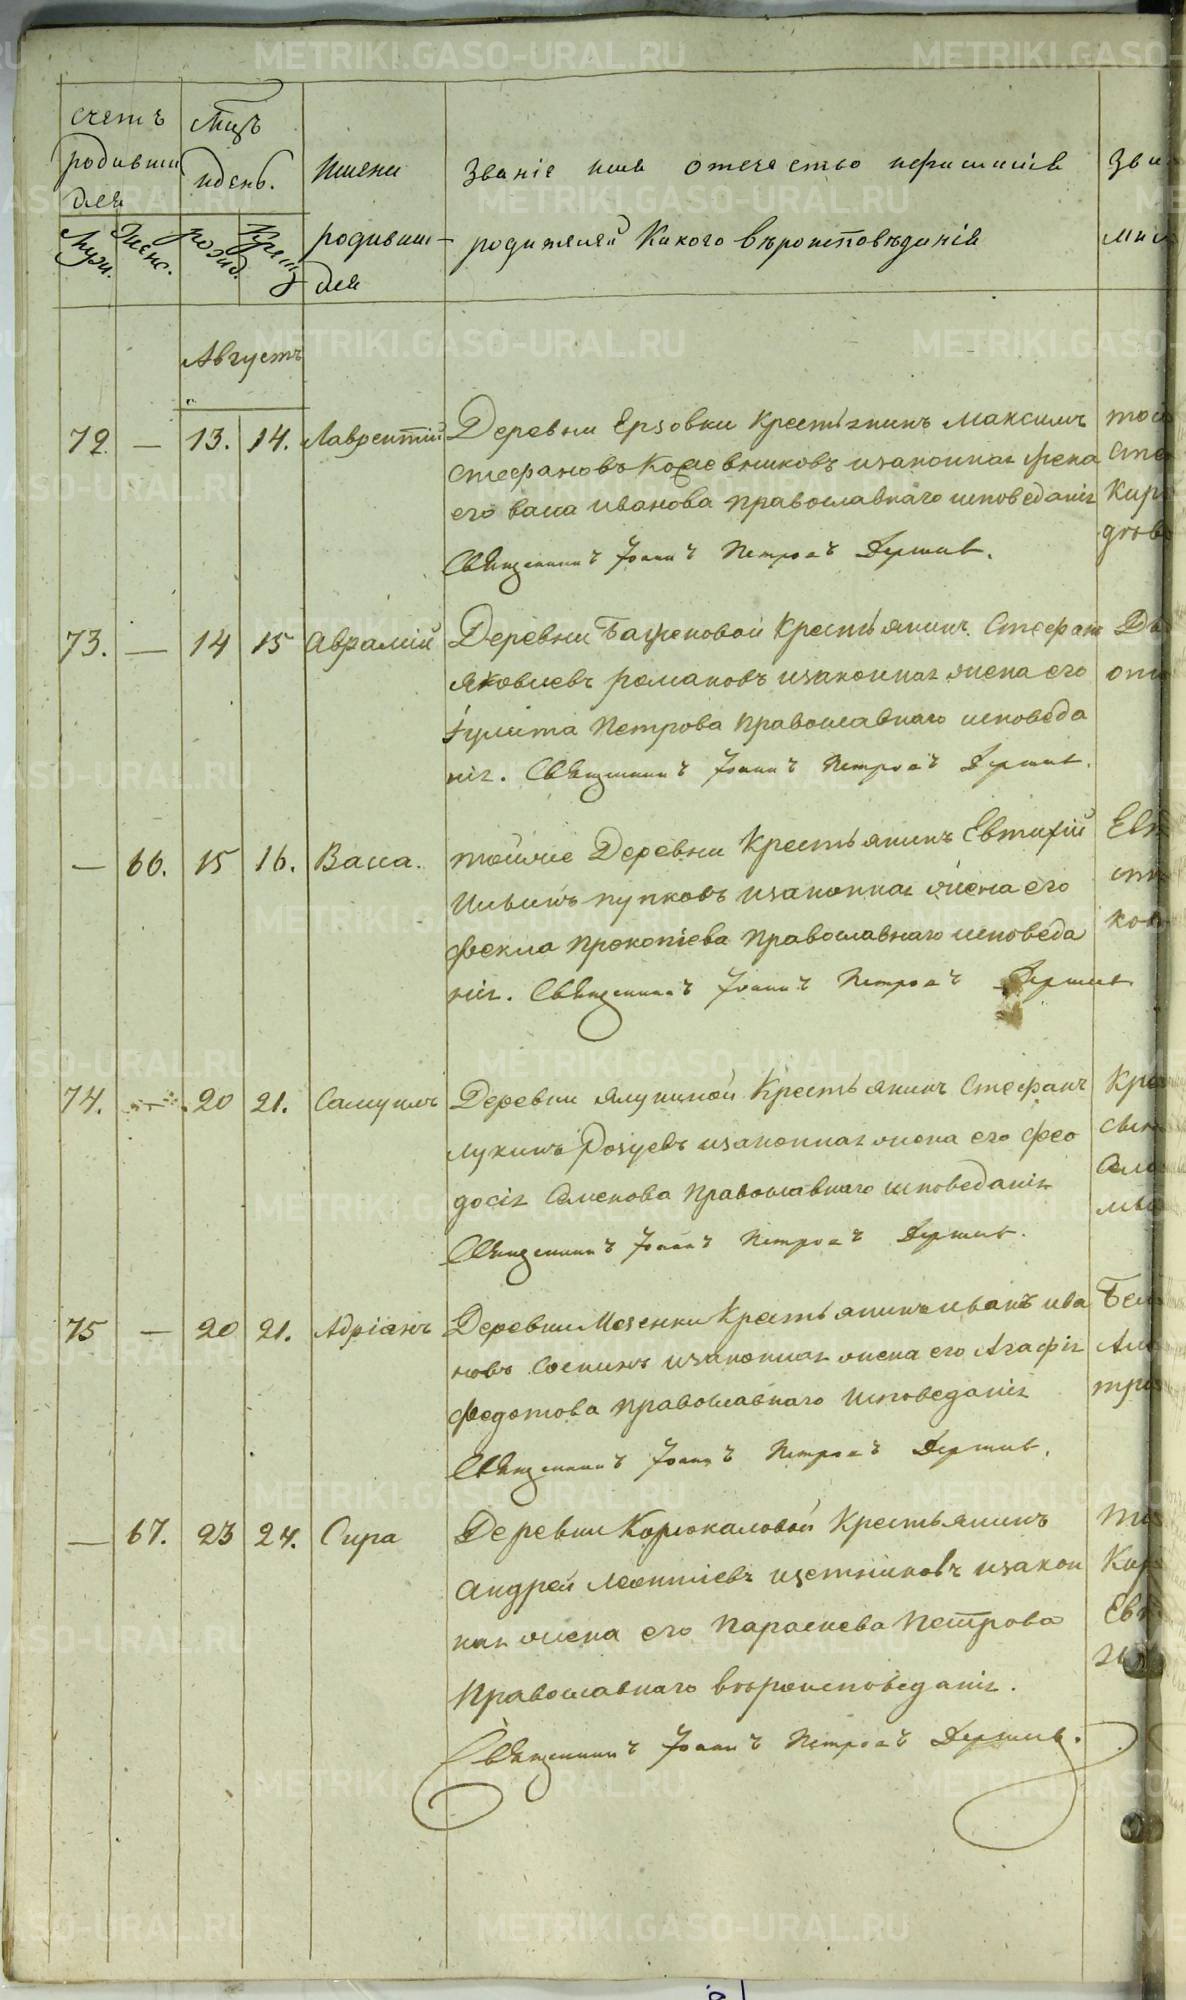 счетъ родившихся
Мцъ и день.
Имена родившихся
Званіе имя отечество и фамиліи
родителей Какого вѣроисповѣданія
Муж. Женс. рожд. Крещ.
Августъ
72. — 13. 14. Лаврентій
Деревни Ерзовки Крестьянинъ Максимъ
Стефановъ Кожевниковъ изаконная жена
его васа иванова православнаго исповеданія
Священникъ Іоаннъ Петровъ
73. — 14 15 Аврамій
Деревни Крестьянинъ Стефанъ
Яковлевъ романовъ изаконная жена его
Іулита Петрова православнаго исповеда
нія. Священникъ Іоаннъ Петровъ
— 66. 15 16. Васса.
тойже Деревни Крестьянинъ Евтихій
Ильинъ пупковъ изаконная жена его
фекла прокопіева православнаго исповеда
нія. Священникъ Іоаннъ Петровъ
74. — 20 21. Самуилъ
Деревни Ялуниной Крестьянинъ Стефанъ
лукинъ изаконная жена его фео
досія Семенова православнаго исповеданія
Священникъ Іоаннъ Петровъ
75 — 20 21. Адріанъ
Деревни Мезенки Крестьянинъ иванъ ива
новъ изаконная жена его Агафія
федотова православнаго исповеданія
Священникъ Іоаннъ Петровъ
— 67. 23 24. Сира
Деревни Корюкаловой Крестьянинъ
андрей леонтіевъ изакон
ная жена его параскева петрова
православнаго вѣроисповѣданія.
Священникъ Іоаннъ Петровъ
METRIKI.GASO-URAL.RU